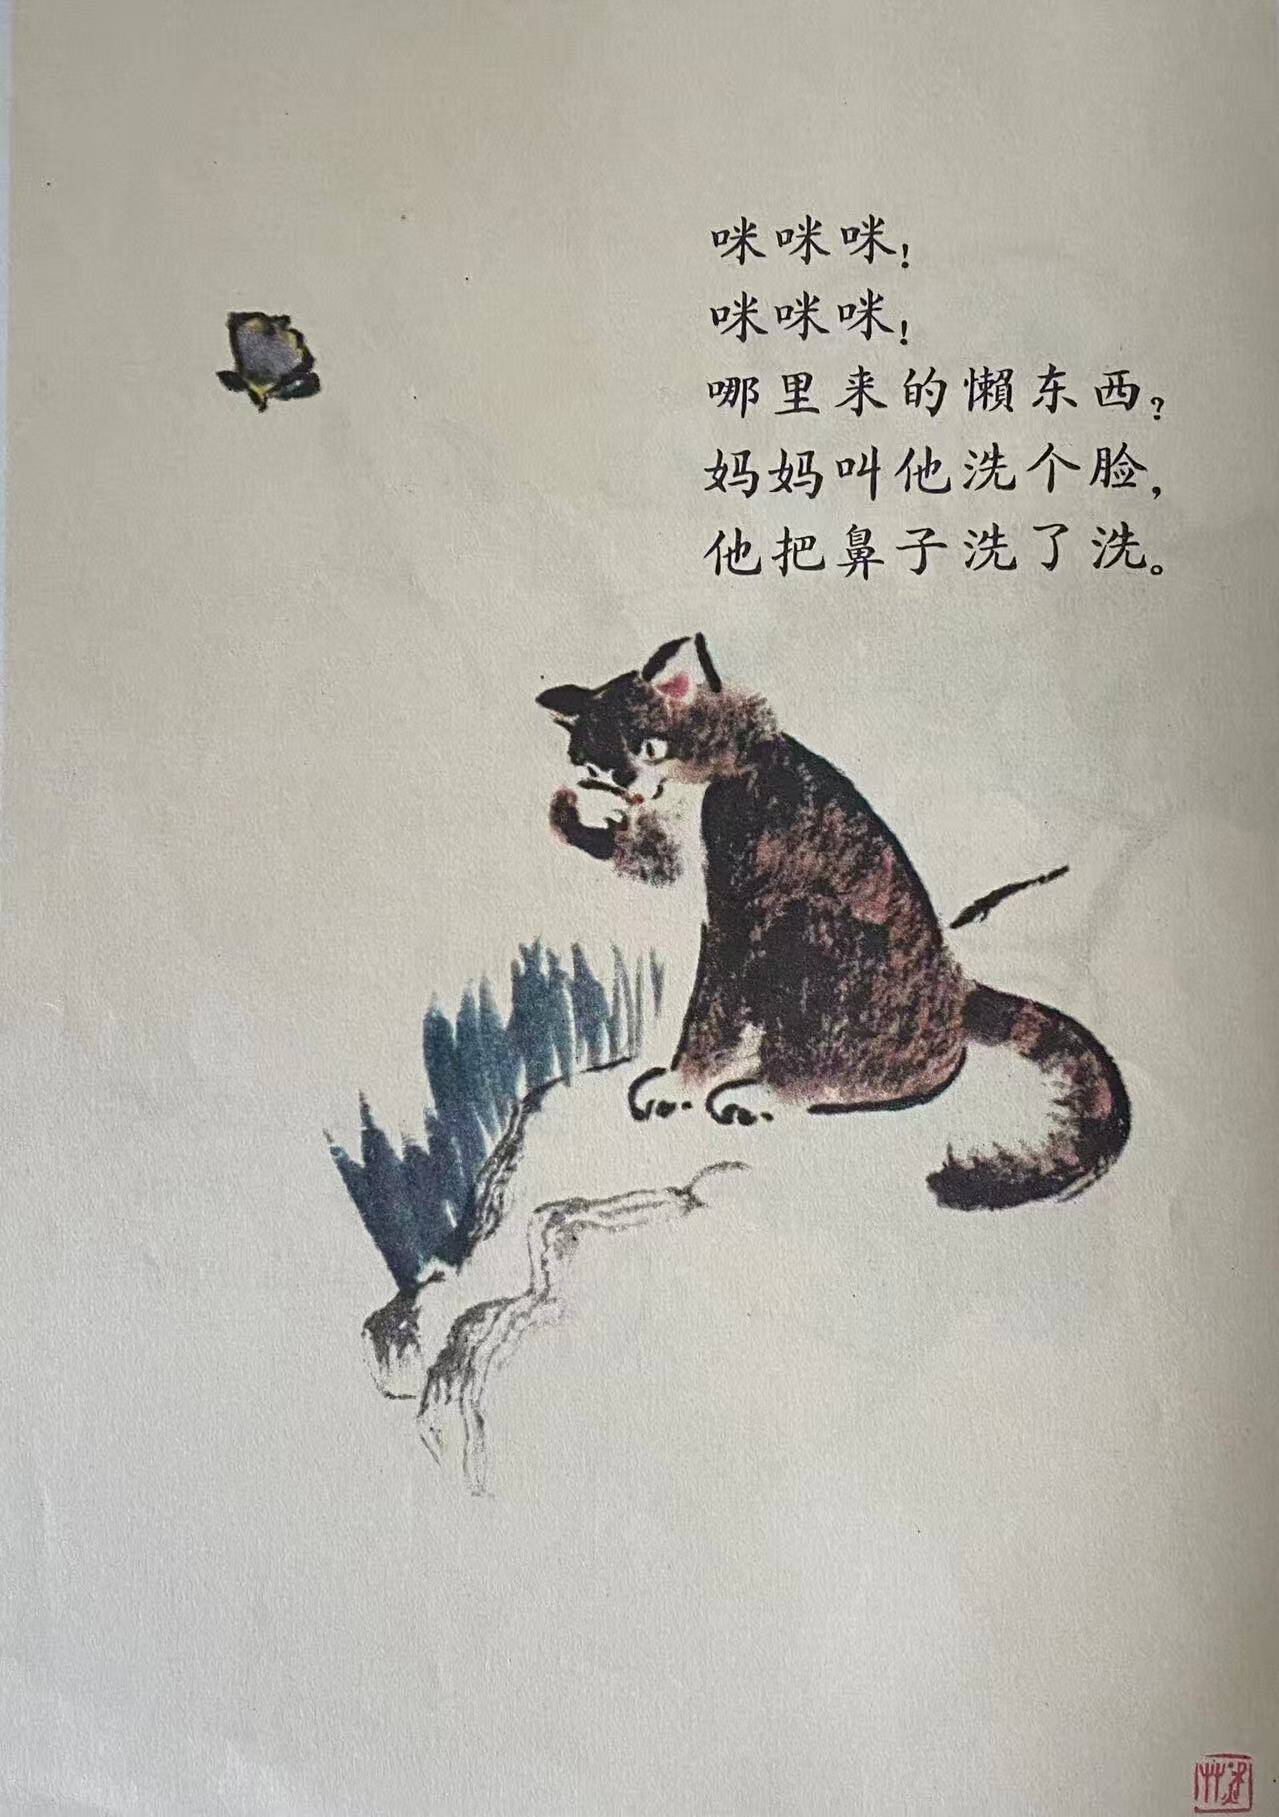 咪咪咪！
咪咪咪！
哪里来的懒东西？
妈妈叫他洗个脸，
他把鼻子洗了洗。